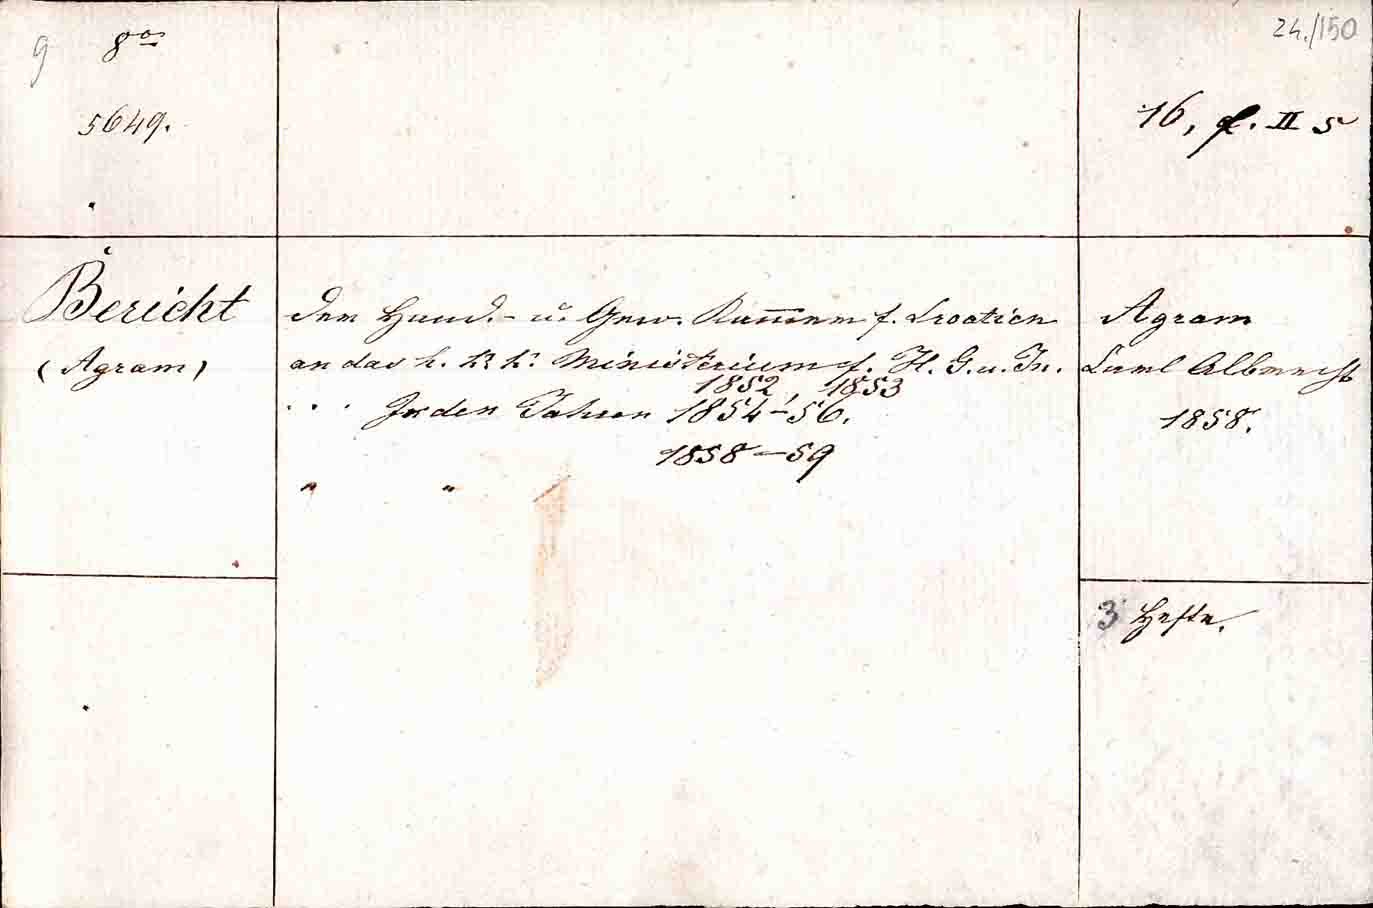 9 8°
24./150
5649.
16, f. II 5
Bericht
der Hand.- u. Gew. Kammer f. Croatien
Agram
(Agram)
an das h. k. k. Ministerium f. H. G. u. In.
Carl Albrecht
1852, 1853
. . . In den Jahren 1854-56.
1858.
1858-59
" "
3 Hefte.